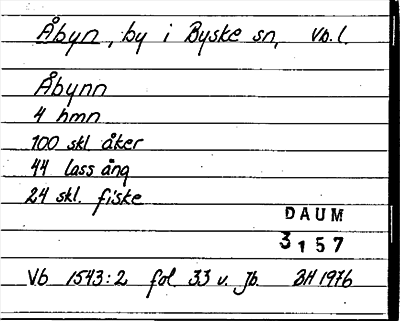 Åbyn, by i Byske sn, Vb. l.
Åbynn
4 hmn
100 skl åker
44 lass äng
24 skl. fiske
DAUM
3157
Vb 1543:2 fol. 33 v. Jb. BH 1976